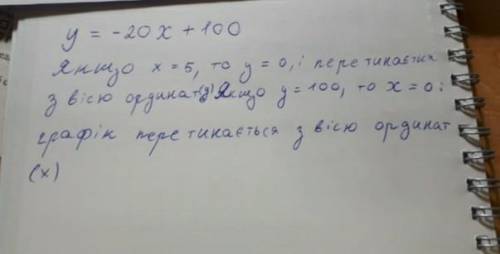 y = -20x + 100
Якщо x = 5, то y = 0, і перетинається
з вісю ординат (y) Якщо y = 100, то x = 0 і
графік перетинається з вісю ординат
(x)